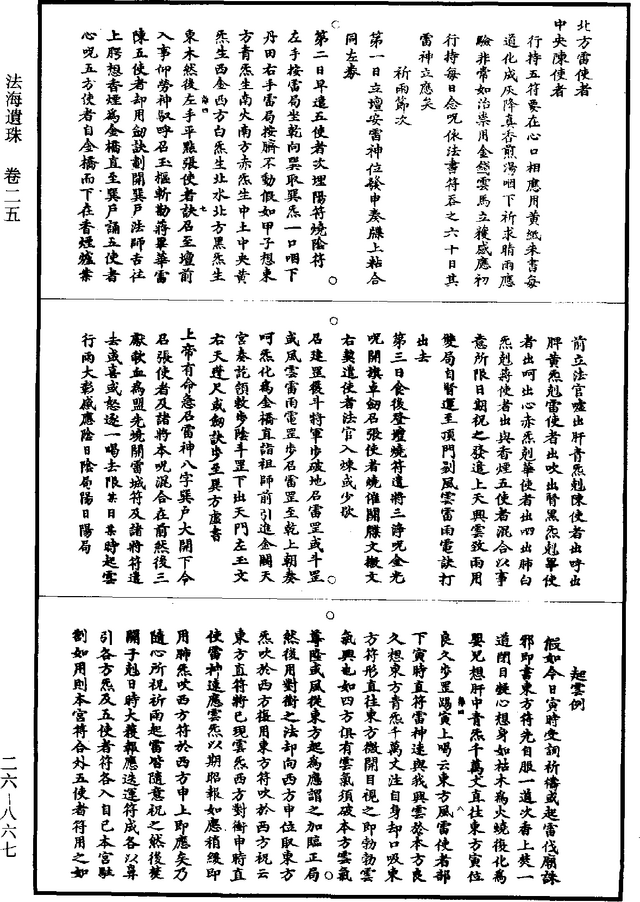 法海遺珠 卷二五
二六—八六七
北方雷使者
中央陳使者
行持五符要在心口相應用黃紙朱書每
道化成灰降真香煎湯咽下祈求晴雨應
驗非常如治祟用金錢雲馬立獲感應初
行持每日念呪依法書符吞之六十日其
雷神立應矣
祈雨節次
第一日立壇安雷神位發申奏牒上粘合
同左券
第二日早遣五使者次埋陽符燒陰符
左手按雷局坐乾向巽取巽炁一口咽下
丹田右手雷局按臍不動假如甲子想東
方青炁生南火南方赤炁生中土中央黃
炁生西金西方白炁生北水北方黑炁生
東木然後左手平點張使者訣召至壇前
入事仰勞神馭呼召玉樞斬勘蔣畢華雷
陳五使者却用劒訣劃開巽戶法師舌拄
上腭想香煙為金橋直至巽戶誦五使者
心呪五方使者自金橋而下在香煙爐案
前立法官噓出肝青炁剋陳使者出呼出
脾黃炁剋雷使者出吹出腎黑炁剋畢使
者出呵出心赤炁剋華使者出呬出肺白
炁剋蔣使者出與香煙五使者混合以事
意所限日期祝之發遣上天興雲致雨用
雙局自腎運至頂門剔風雲雷雨電訣打
出去
第三日食後登壇燒符遣將三淨呪金光
呪開旗卓劒召張使者燒催關牒文檄文
右契遣使者法官入煉或少歇
召建罡獲斗將軍步破地召雷罡或斗罡
或風雲雷雨電罡步召雷罡至乾上朝奏
呵炁化為金橋直詣祖師前引進金闕天
宮奏訖領敕步陰斗罡下出天門左玉文
右天蓬尺或劒訣步至巽方虛書
上帝有命急召雷神八字巽戶大開下令
召張使者及諸將本呪混合在前然後三
獻歃血為盟先燒開雷城符及諸將符遣
去或喜或怒逐一喝去限某日某時起雲
行雨大彰感應陰日陰局陽日陽局
起雲例
假如今日寅時受詞祈禱或起雷伐廟誅
邪即書東方符先自服一道次香上焚一
道閉目凝心想身如枯木為火燒後化為
嬰兒想肝中青炁千萬丈直往東方寅位
良久步罡踢寅上喝云東方風雷使者部
下寅時直符雷神速與我興雲發本方良
久想東方青炁千萬丈注自身却口吸東
方符形直往東方微開目視之即勃勃雲
氣興也如四方俱有雲氣須破本方雲氣
尊隆或風從東方起為應謂之加臨正局
然後用對衝之法却向西方申位取東方
炁吹於西方復用東方符吹於西方祝云
東方直符將已現雲炁西方對衝申時直
使雷神速應雲炁以期昭報如應稍緩即
用肺炁吹西方符於西方申上即應矣乃
隨心所祝祈雨起雷皆隨意祝之然後焚
關子剋日時大獲報應迭運符成各以鼻
引各方炁及五使者符各入自己本宮駐
劄如用則本宮符合外五使者符用之如